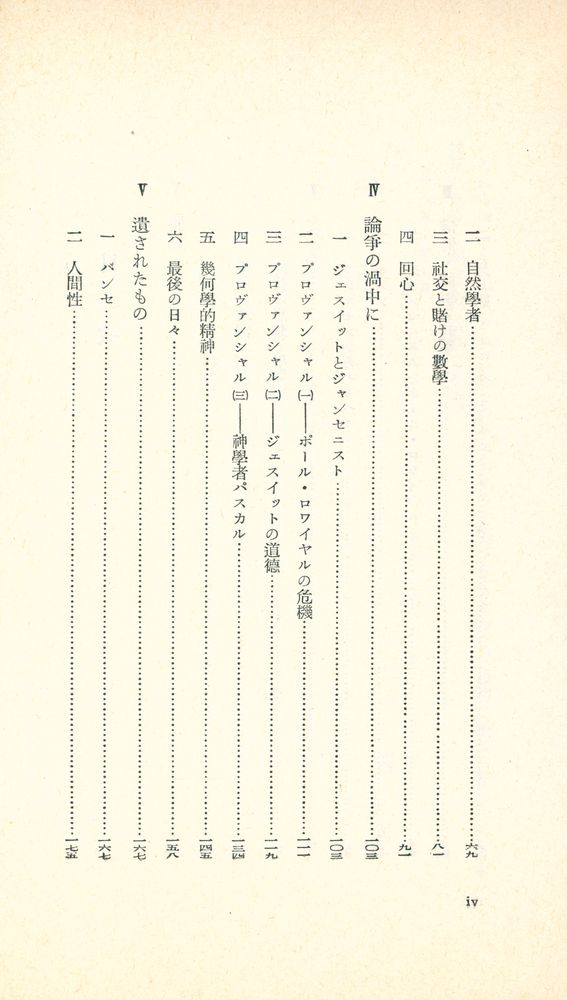 二 自然學者……六九
三 社交と賭けの數學……八一
四 回心……九一
Ⅳ 論爭の渦中に……一〇三
一 ジェスイットとジャンセニスト……一〇三
二 プロヴァンシャル(一)――ポール・ロワイヤルの危機……一一一
三 プロヴァンシャル(二)――ジェスイットの道德……一一九
四 プロヴァンシャル(三)――神學者パスカル……一三四
五 幾何學的精神……一四五
六 最後の日々……一五八
Ⅴ 遺されたもの……一六七
一 パンセ……一六七
二 人間性……一七五
iv